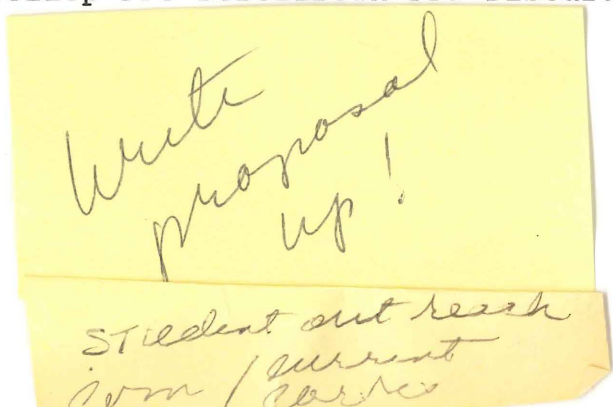 Write
proposal
up!
Student out reach
com / current